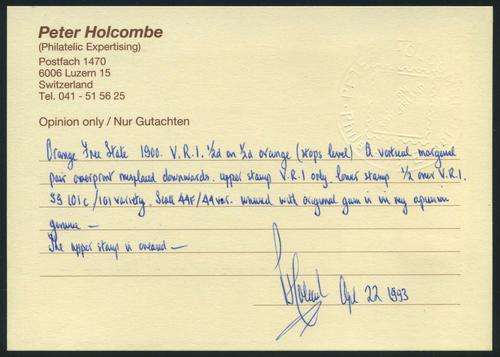 Peter Holcombe
(Philatelic Expertising)
Postfach 1470
6006 Luzern 15
Switzerland
Tel. 041 - 51 56 25
Opinion only / Nur Gutachten
Orange Free State 1900. V.R.I. ½d on ½d orange (stops level) A vertical marginal
pair overprint misplaced downwards. upper stamp V.R.I only, lower stamp ½ over V.R.I.
SG 101c / 101 variety. Scott 44f/44var. unused with original gum is in my opinion
genuine —
The upper stamp is creased —
Holcombe April 22 1993